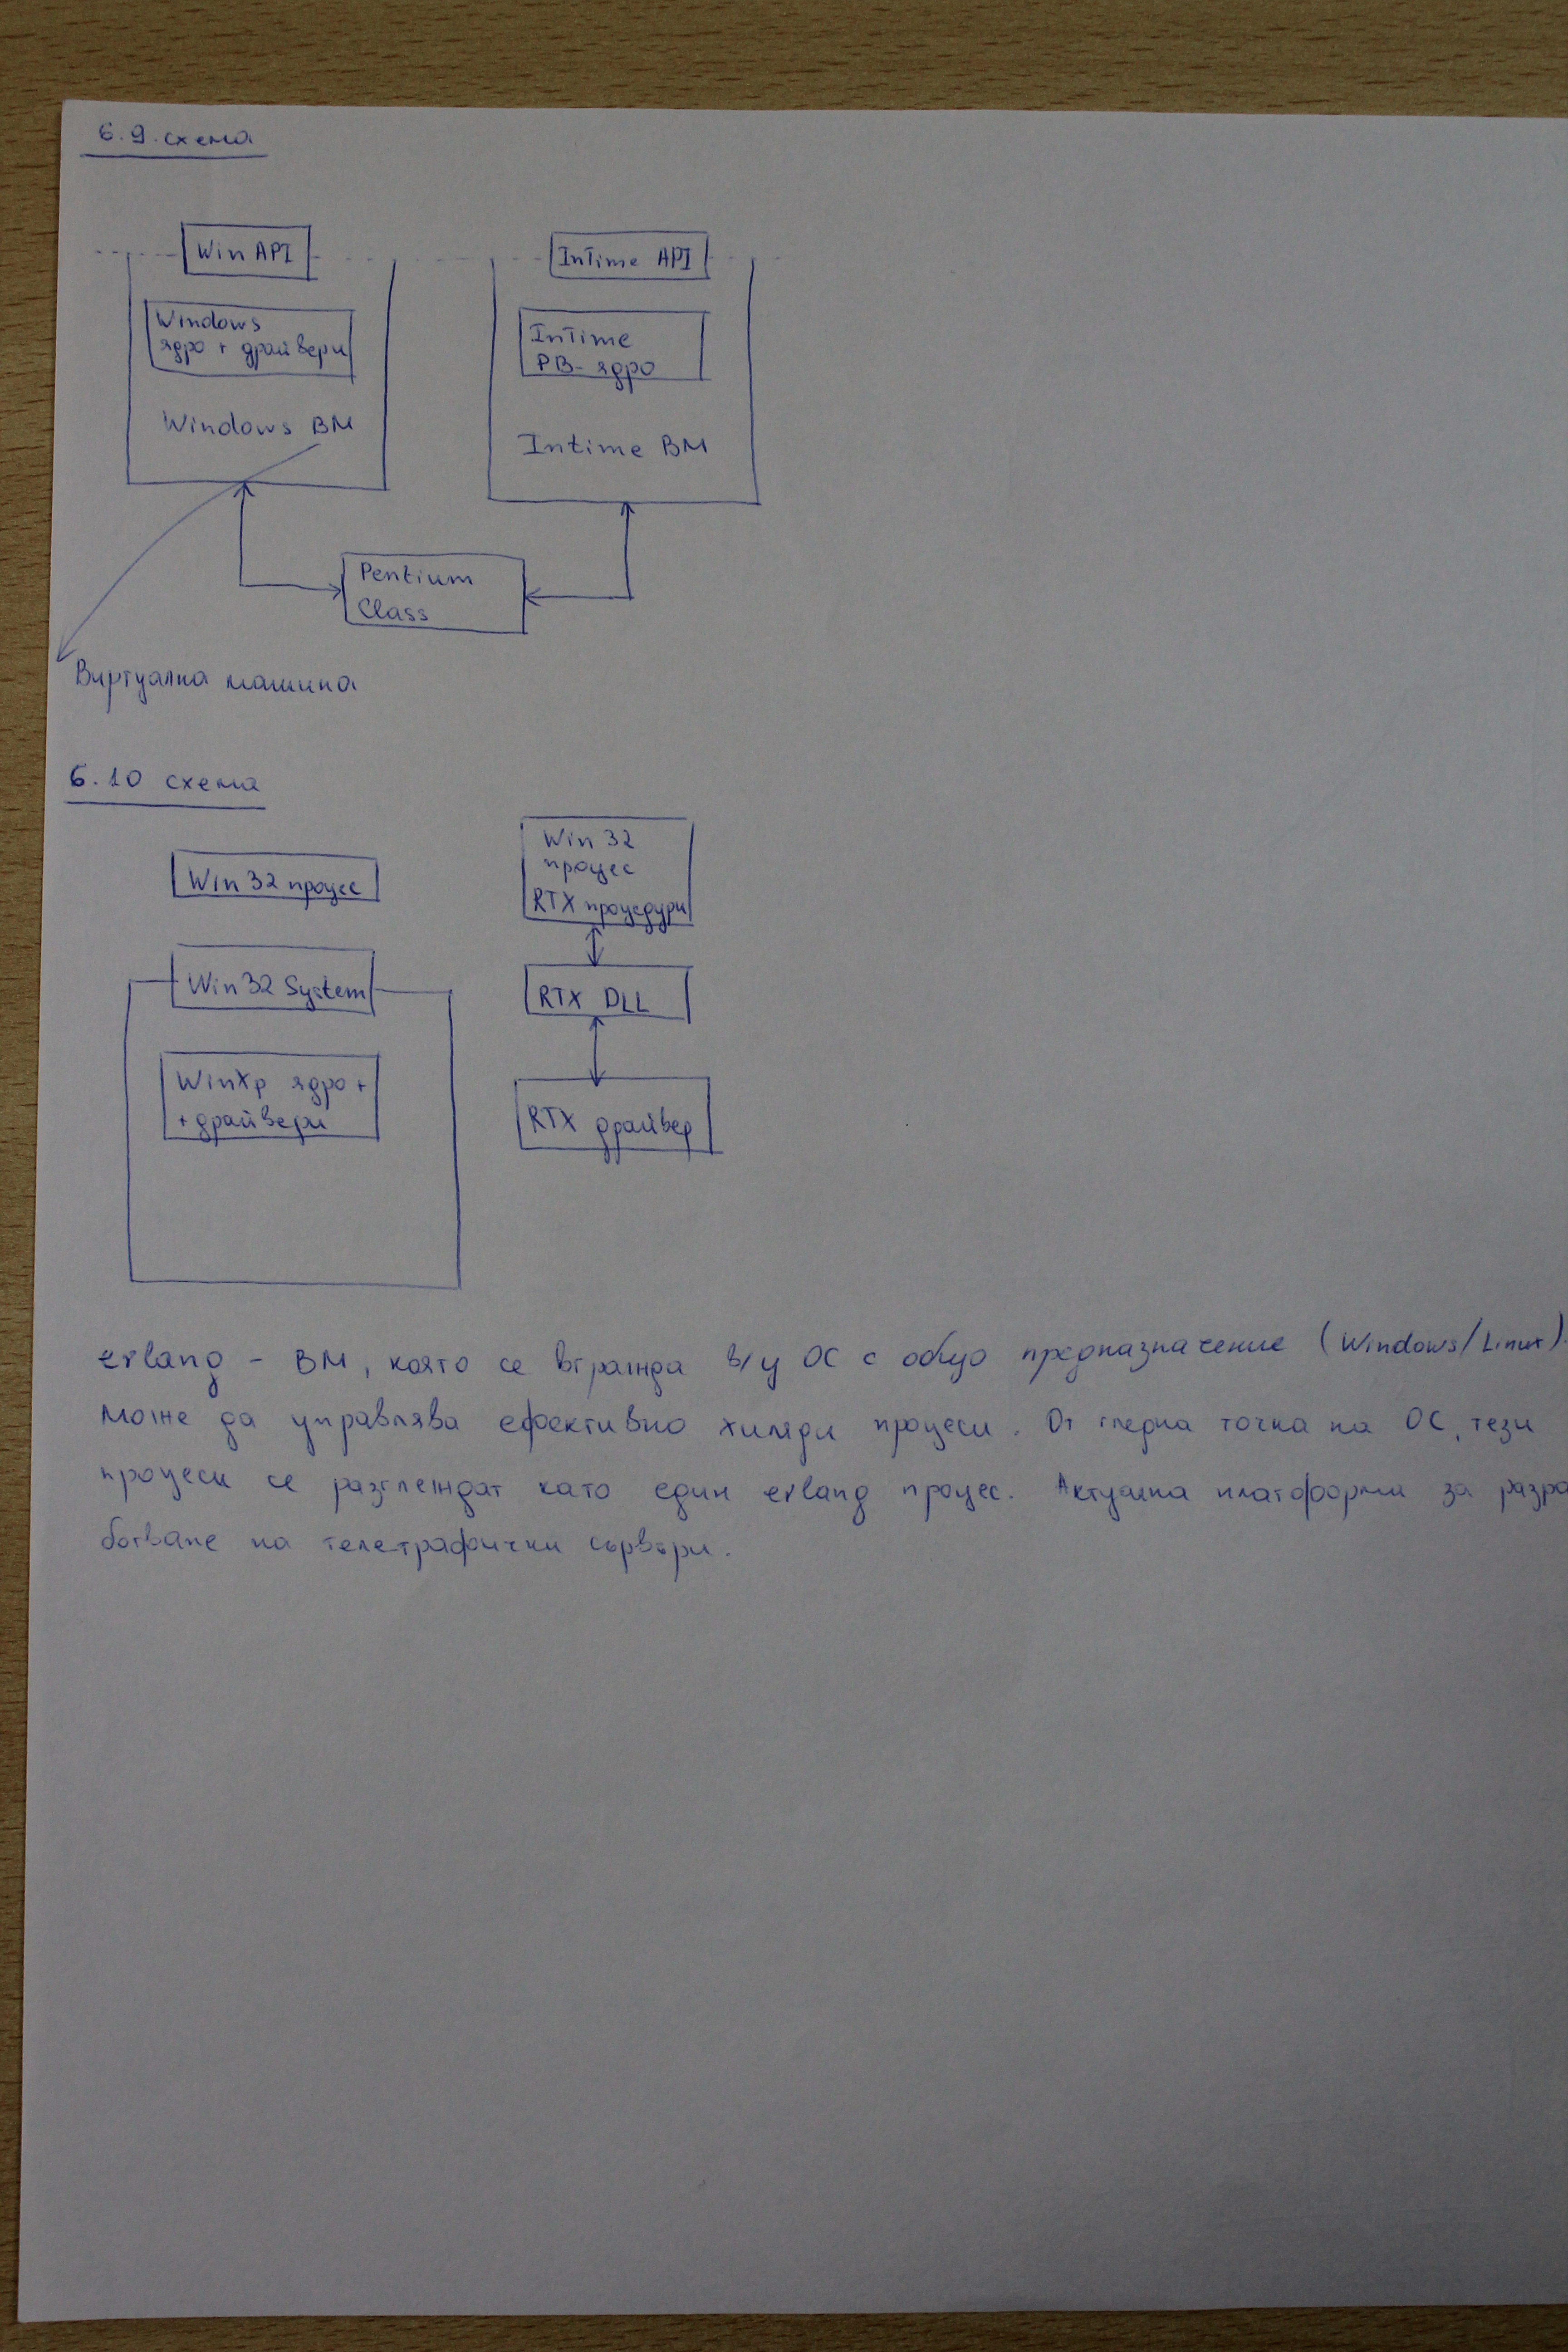 6.9. схема
Win API
InTime API
Windows
ядро + драйвери
InTime
РВ- ядро
Windows ВМ
Intime ВМ
Pentium
Class
Виртуална машина
6.10 схема
Win 32 процес
Win 32
процес
RTX процедури
Win 32 System
RTX DLL
WinXp ядро +
+ драйвери
RTX драйвер
erlang - ВМ, която се вгражда в/у ОС с общо предназначение (Windows/Linux).
Може да управлява ефективно хиляди процеси. От гледна точка на ОС, тези
процеси се разглеждат като един erlang процес. Актуална платформа за разра
ботване на телетрафични сървъри.